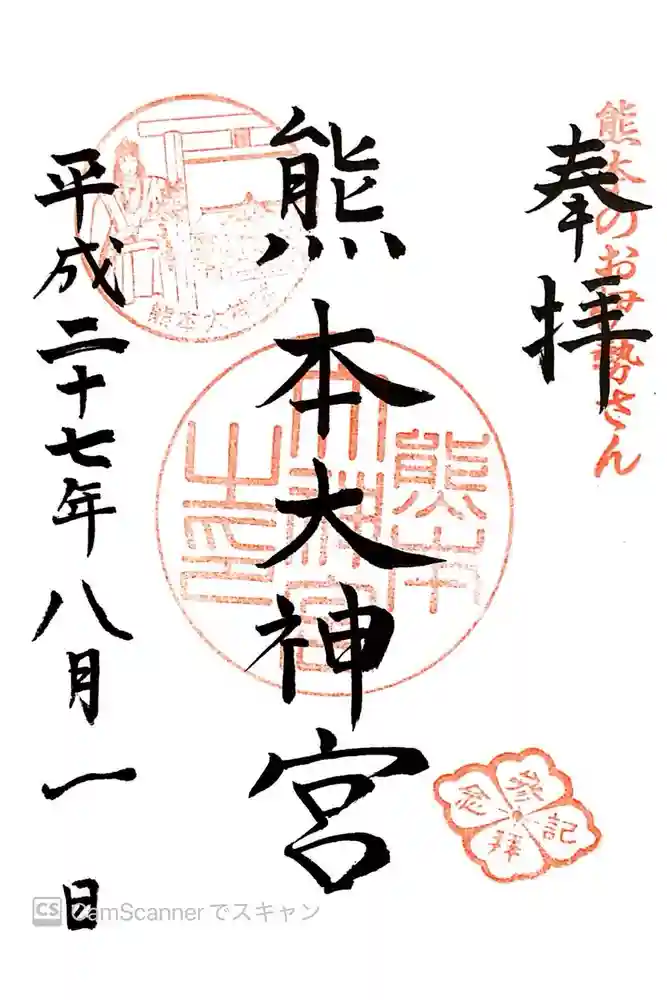 熊本のお伊勢さん
奉拝
熊本大神宮
熊本大神宮之印
熊本大神宮
平成二十七年八月一日
参拝記念
CS CamScanner でスキャン